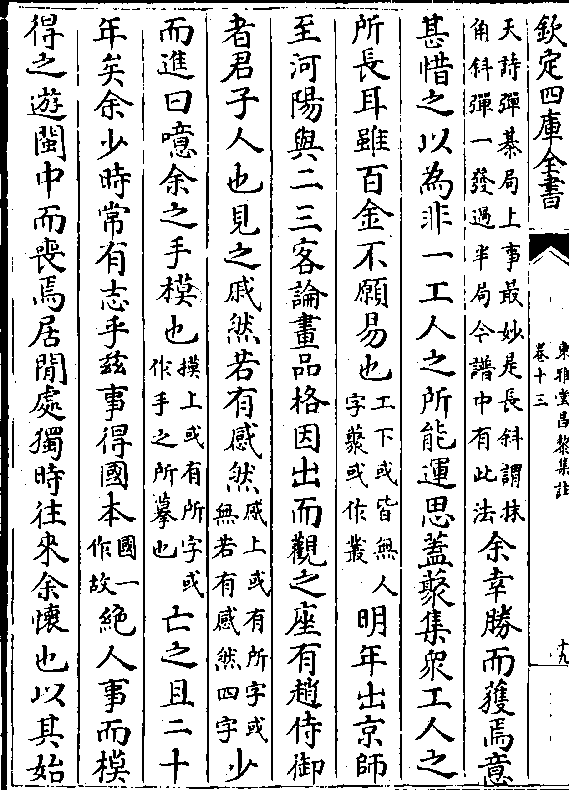 欽定四庫全書
東雅堂昌黎集註
卷十三
十九
天詩彈棊局上事最妙是長斜謂抹
角斜彈一發過半局今譜中有此法
余幸勝而獲焉意
甚惜之以為非一工人之所能運思蓋藂集衆工人之
所長耳雖百金不願易也
工下或皆無人
字藂或作叢
明年出京師
至河陽與二三客論畫品格因出而觀之座有趙侍御
者君子人也見之戚然若有感然
戚上或有所字或
無若有感然四字
少
而進曰噫余之手模也
摸上或有所字或
作手之所摹也
亡之且二十
年矣余少時常有志乎茲事得國本
國一
作故
絶人事而模
得之遊閩中而喪焉居閒處獨時往來余懷也以其始